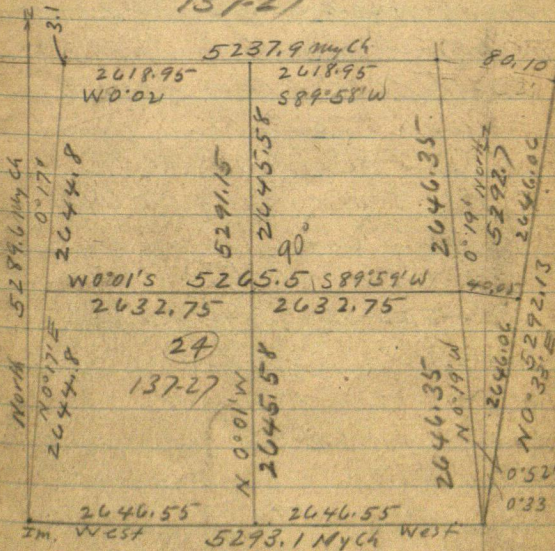 137-27
3.1
5237.9 My Ch
2618.95
2618.95
80.10
W 0°02
S 89°58' W
North 5289.6 My Ch
0°17'
2644.8
5291.15
2645.58
2646.35
0°19'
North
5292.7
2646.06
90°
W 0°01' S 5265.5 S 89°59' W
40.05
2632.75
2632.75
24
137-27
N 0°17' E
2644.8
N 0°01' W
2645.58
2646.35
N 0°19' W
2646.06
N 0°33' E
5292.13
0°52
0°33
2646.55
2646.55
Im. West
5293.1 My Ch
West